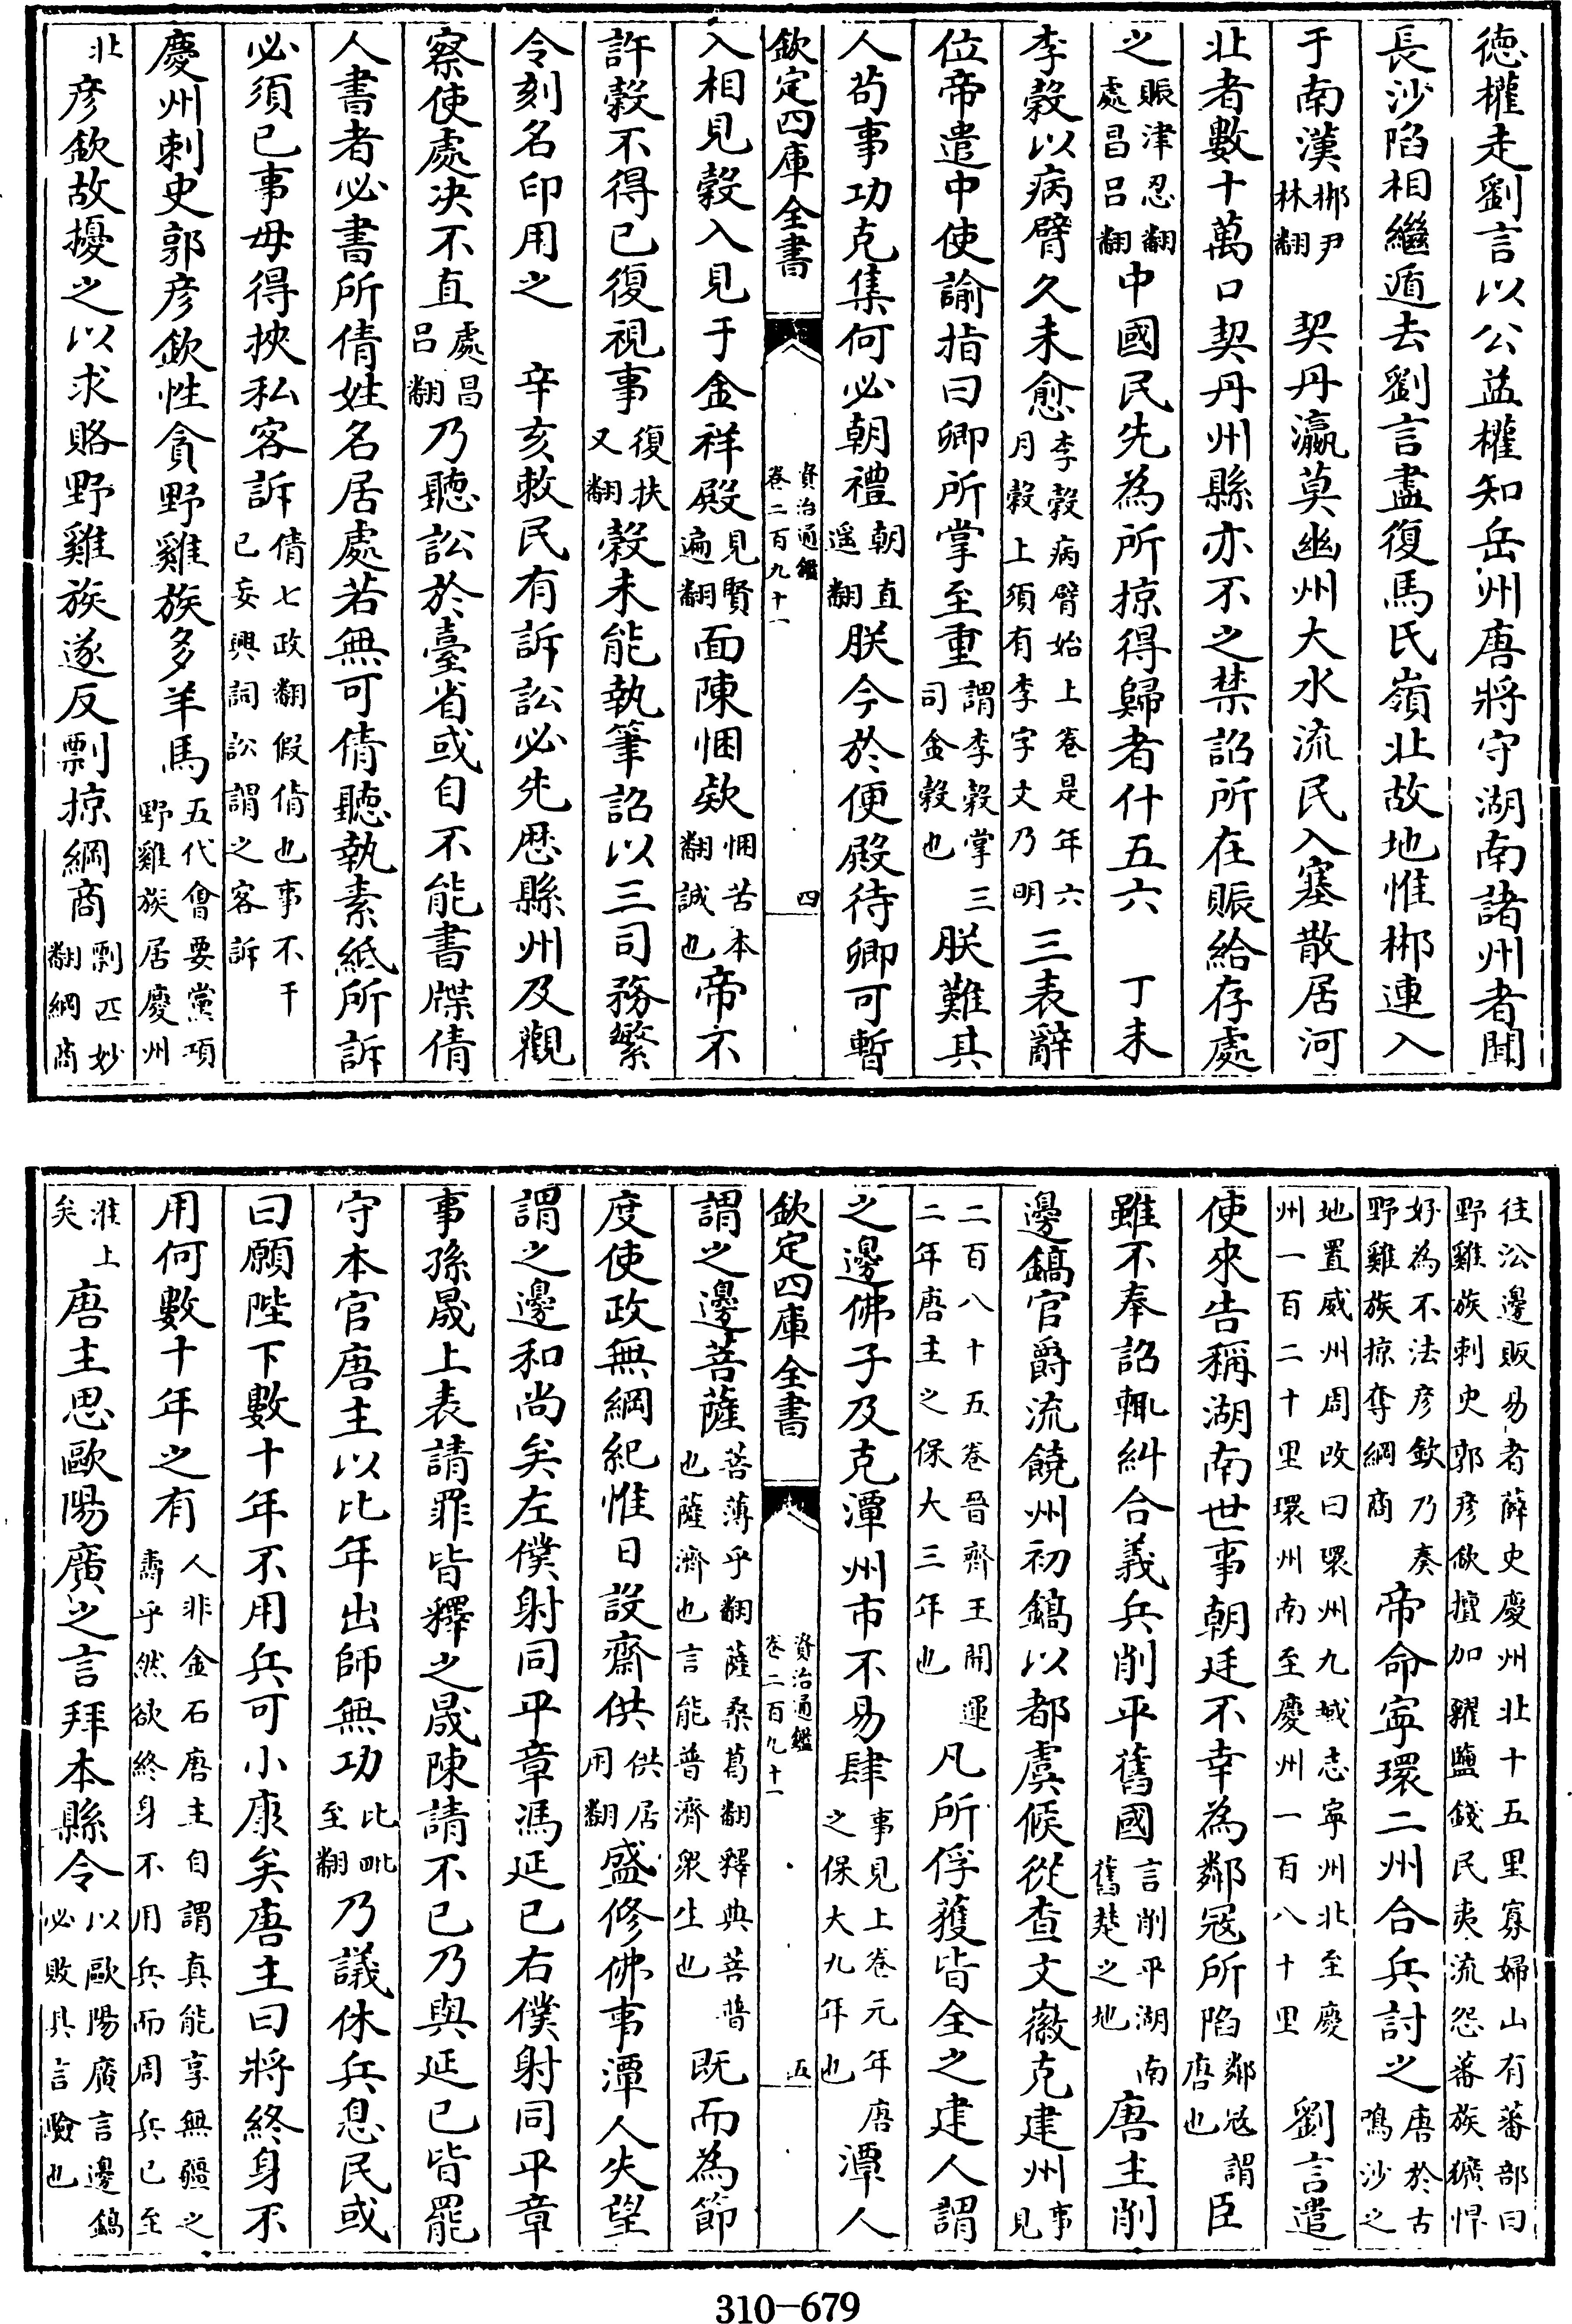 德權走劉言以公益權知岳州唐將守湖南諸州者聞
長沙陷相繼遁去劉言盡復馬氏嶺北故地惟郴連入
于南漢郴尹林翻　契丹瀛莫幽州大水流民入塞散居河
北者數十萬口契丹州縣亦不之禁詔所在賑給存處
之賑津忍翻處昌呂翻中國民先為所掠得歸者什五六　丁未
李穀以病臂久未愈李穀病臂始上卷是年六月穀上須有李字文乃明　三表辭
位帝遣中使諭指曰卿所掌至重謂李穀掌三司金穀也朕難其
人苟事功克集何必朝禮朝直遥翻朕今於便殿待卿可暫
欽定四庫全書　資治通鑑卷二百九十一　四
入相見穀入見于金祥殿見賢遍翻面陳悃欵悃苦本翻誠也帝不
許穀不得已復視事復扶又翻穀未能執筆詔以三司務繁
令刻名印用之　辛亥敕民有訴訟必先歴縣州及觀
察使處決不直處昌呂翻乃聽訟於臺省或自不能書牒倩
人書者必書所倩姓名居處若無可倩聽執素紙所訴
必須已事毋得挾私客訴倩七政翻假倩也事不干已妄興詞訟謂之客訴
慶州刺史郭彦欽性貪野雞族多羊馬五代會要黨項野雞族居慶州
北彦欽故擾之以求賂野雞族遂反剽掠綱商剽匹妙翻綱商
往㳂邊販易者薛史慶州北十五里寡婦山有蕃部曰野雞族刺史郭彦欽擅加𣙜鹽錢民夷流怨蕃族獷悍
好為不法彦欽乃奏野雞族掠奪綱商帝命寧環二州合兵討之唐於古鳴沙之
地置威州周改曰環州九域志寧州北至慶州一百二十里環州南至慶州一百八十里　劉言遣
使來告稱湖南世事朝廷不幸為鄰冦所陷鄰冦謂唐也臣
雖不奉詔輒糾合義兵削平舊國言削平湖南舊楚之地　唐主削
邊鎬官爵流饒州初鎬以都虞候從查文徽克建州事見
二百八十五卷晉齊王開運二年唐主之保大三年也凡所俘獲皆全之建人謂
之邊佛子及克潭州市不易肆事見上卷元年唐之保大九年也潭人
欽定四庫全書　資治通鑑卷二百九十一　五
謂之邊菩薩菩薄乎翻薩桑葛翻釋典菩普也薩濟也言能普濟衆生也既而為節
度使政無綱紀惟日設齋供供居用翻盛修佛事潭人失望
謂之邊和尚矣左僕射同平章馮延已右僕射同平章
事孫晟上表請罪皆釋之晟陳請不已乃與延已皆罷
守本官唐主以比年出師無功比毗至翻乃議休兵息民或
曰願陛下數十年不用兵可小康矣唐主曰將終身不
用何數十年之有人非金石唐主自謂真能享無疆之壽乎然欲終身不用兵而周兵已至
淮上矣唐主思歐陽廣之言拜本縣令以歐陽廣言邊鎬必敗其言驗也
310-679